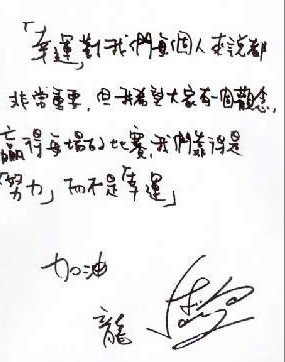 「幸運」對我們每個人來說都
非常重要,但我希望大家有一個觀念,
贏得每場的比賽,我們靠得是
「努力」而不是「幸運」
加油
龍